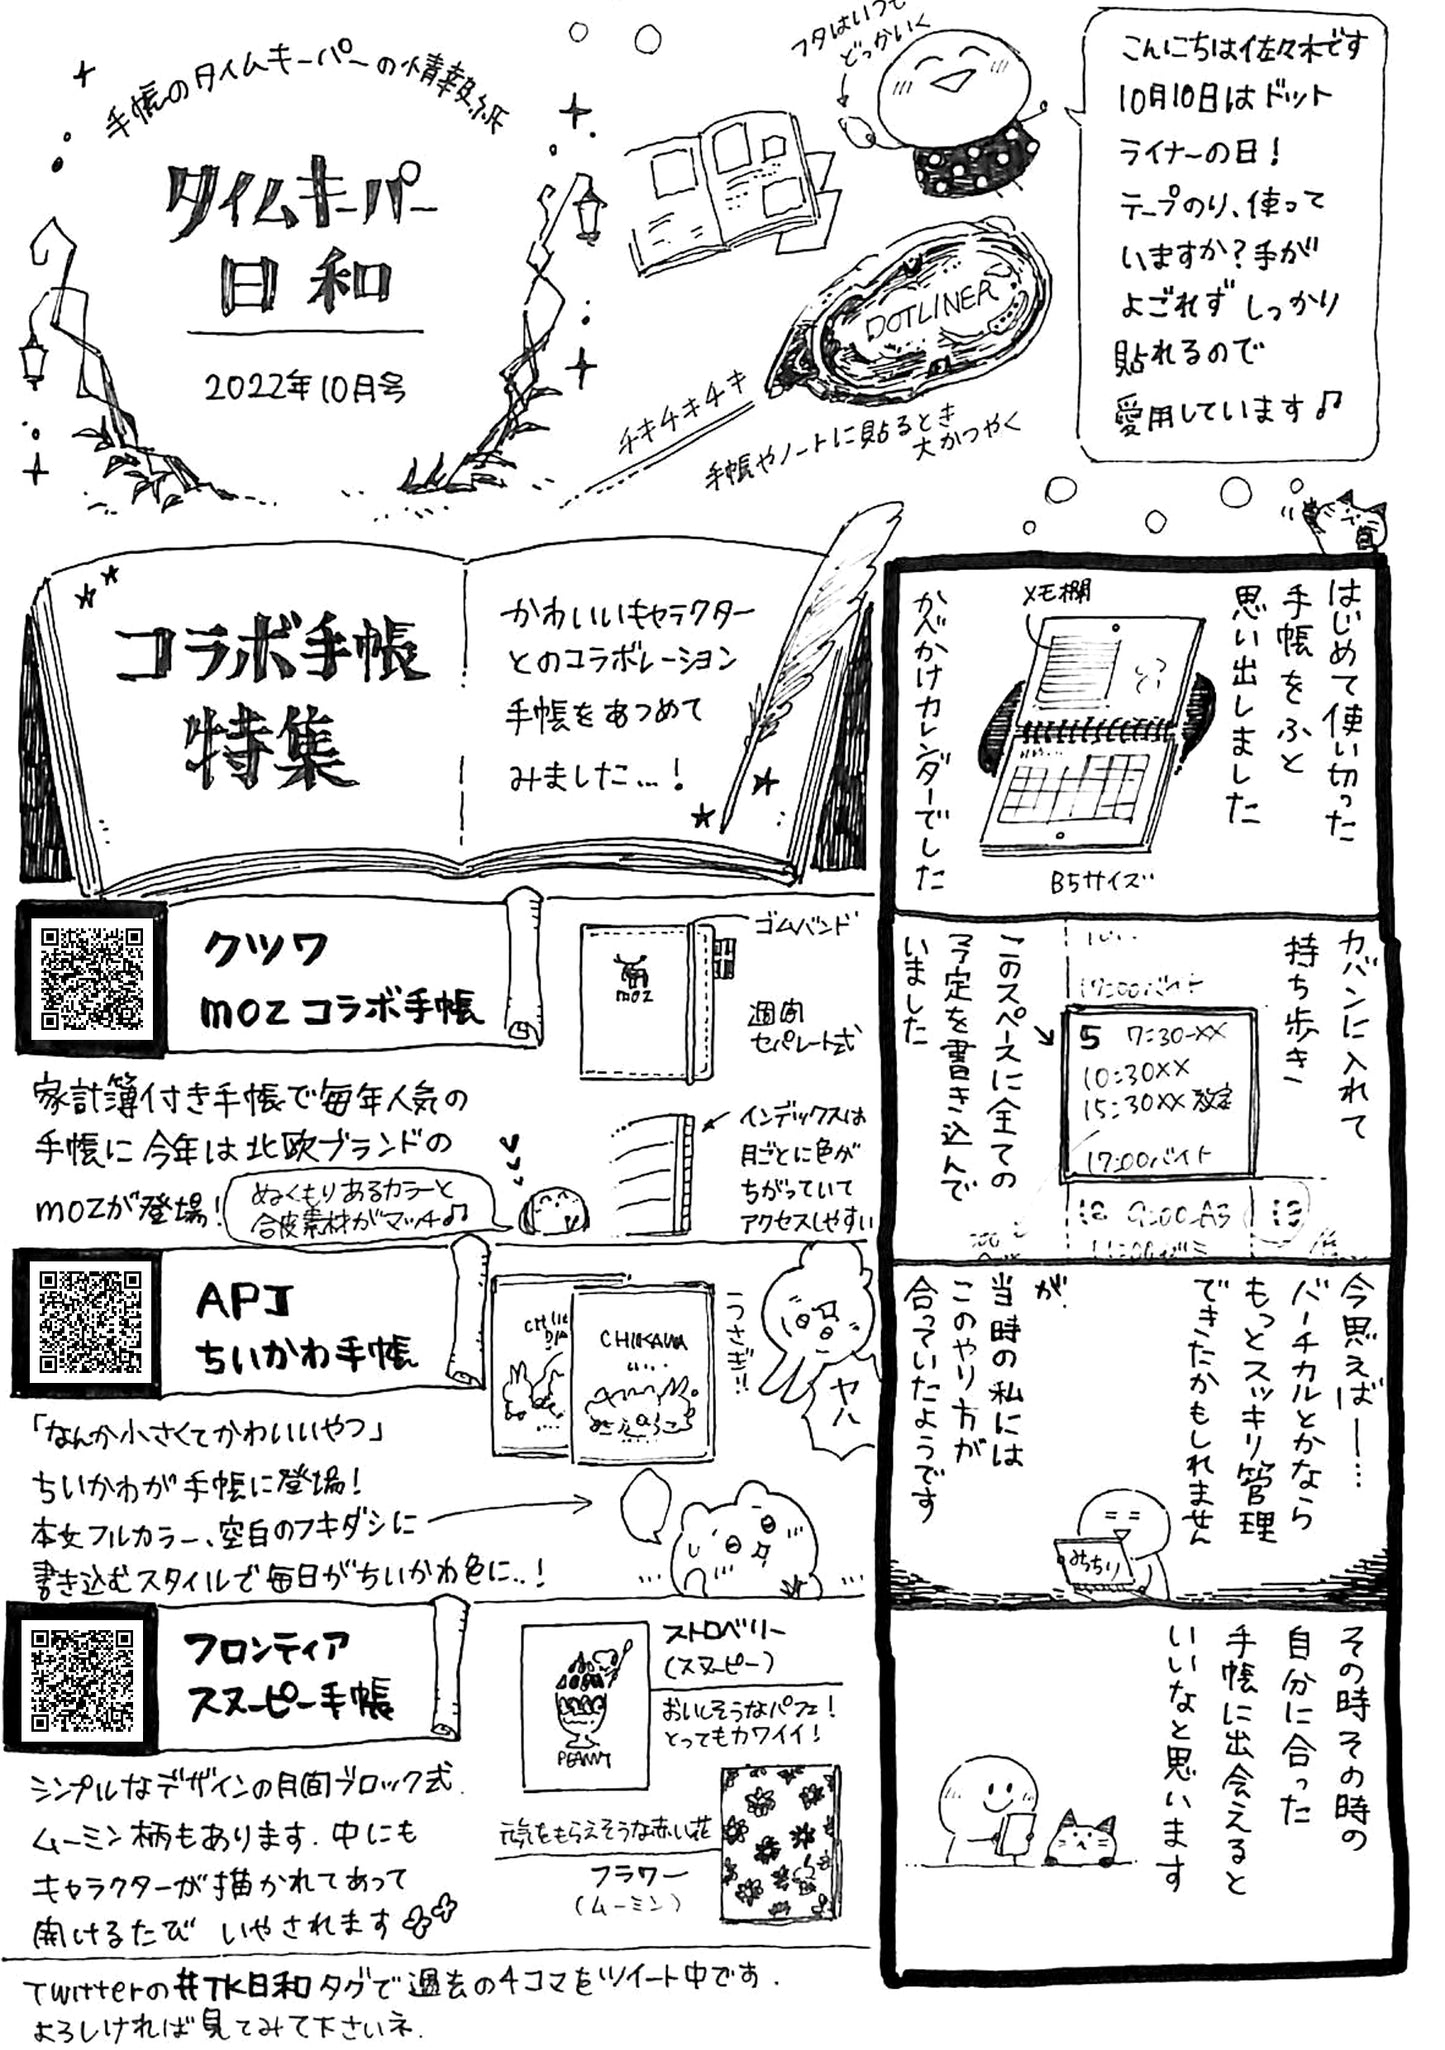 手帳のタイムキーパーの情報紙
タイムキーパー
日和
2022年10月号
フタはいつも
どっかいく
こんにちは佐々木です
10月10日はドット
ライナーの日!
テープのり、使って
いますか?手が
よごれず しっかり
貼れるので
愛用しています♫
DOTLINER
チキチキチキ
手帳やノートに貼るとき
大かつやく
コラボ手帳
特集
かわいいキャラクター
とのコラボレーション
手帳をあつめて
みました…!
クツワ
moz コラボ手帳
moz
ゴムバンド
週間
セパレート式
家計簿付き手帳で毎年人気の
手帳に 今年は北欧ブランドの
mozが登場!
ぬくもりあるカラーと
合皮素材がマッチ♫
インデックスは
月ごとに色が
ちがっていて
アクセスしやすい
APJ
ちいかわ手帳
CHIIKAWA
うさぎ!!
ヤハ
「なんか小さくてかわいいやつ」
ちいかわが手帳に登場!
本文フルカラー、空白のフキダシに
書き込むスタイルで毎日がちいかわ色に..!
フロンティア
スヌーピー手帳
PEANUT
ストロベリー
(スヌーピー)
おいしそうなパフェ!
とってもカワイイ!
シンプルなデザインの月間ブロック式.
ムーミン柄もあります. 中にも
キャラクターが描かれてあって
開けるたび いやされます
元気をもらえそうな赤い花
フラワー
(ムーミン)
Twitterの#TK日和タグで過去の4コマをツイート中です.
よろしければ見てみて下さいネ.
はじめて使い切った
手帳をふと
思い出しました
メモ欄
B5サイズ
かべかけカレンダーでした
カバンに入れて
持ち歩き
17:00バイト
5 7:30-××
10:30××
15:30×× 改定
17:00バイト
このスペースに全ての
予定を書き込んで
いました
今思えば――…
バーチカルとかなら
もっとスッキリ管理
できたかもしれません
が.
当時の私には
このやり方が
合っていたようです
みちり
その時その時の
自分に合った
手帳に出会えると
いいなと思います